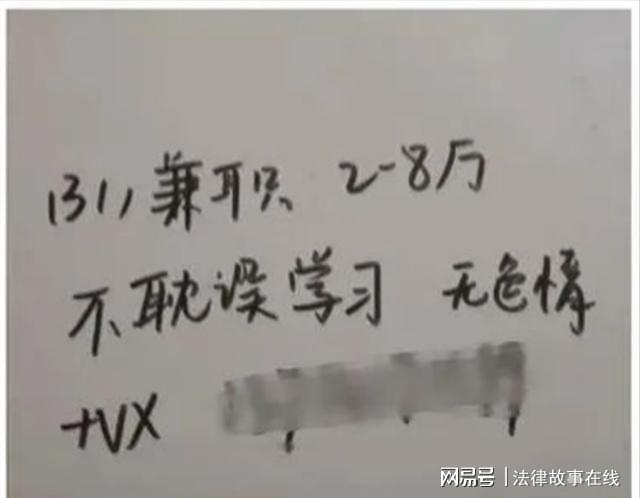 131,兼职 2-8万
不耽误学习 无色情
+VX
网易号 | 法律故事在线